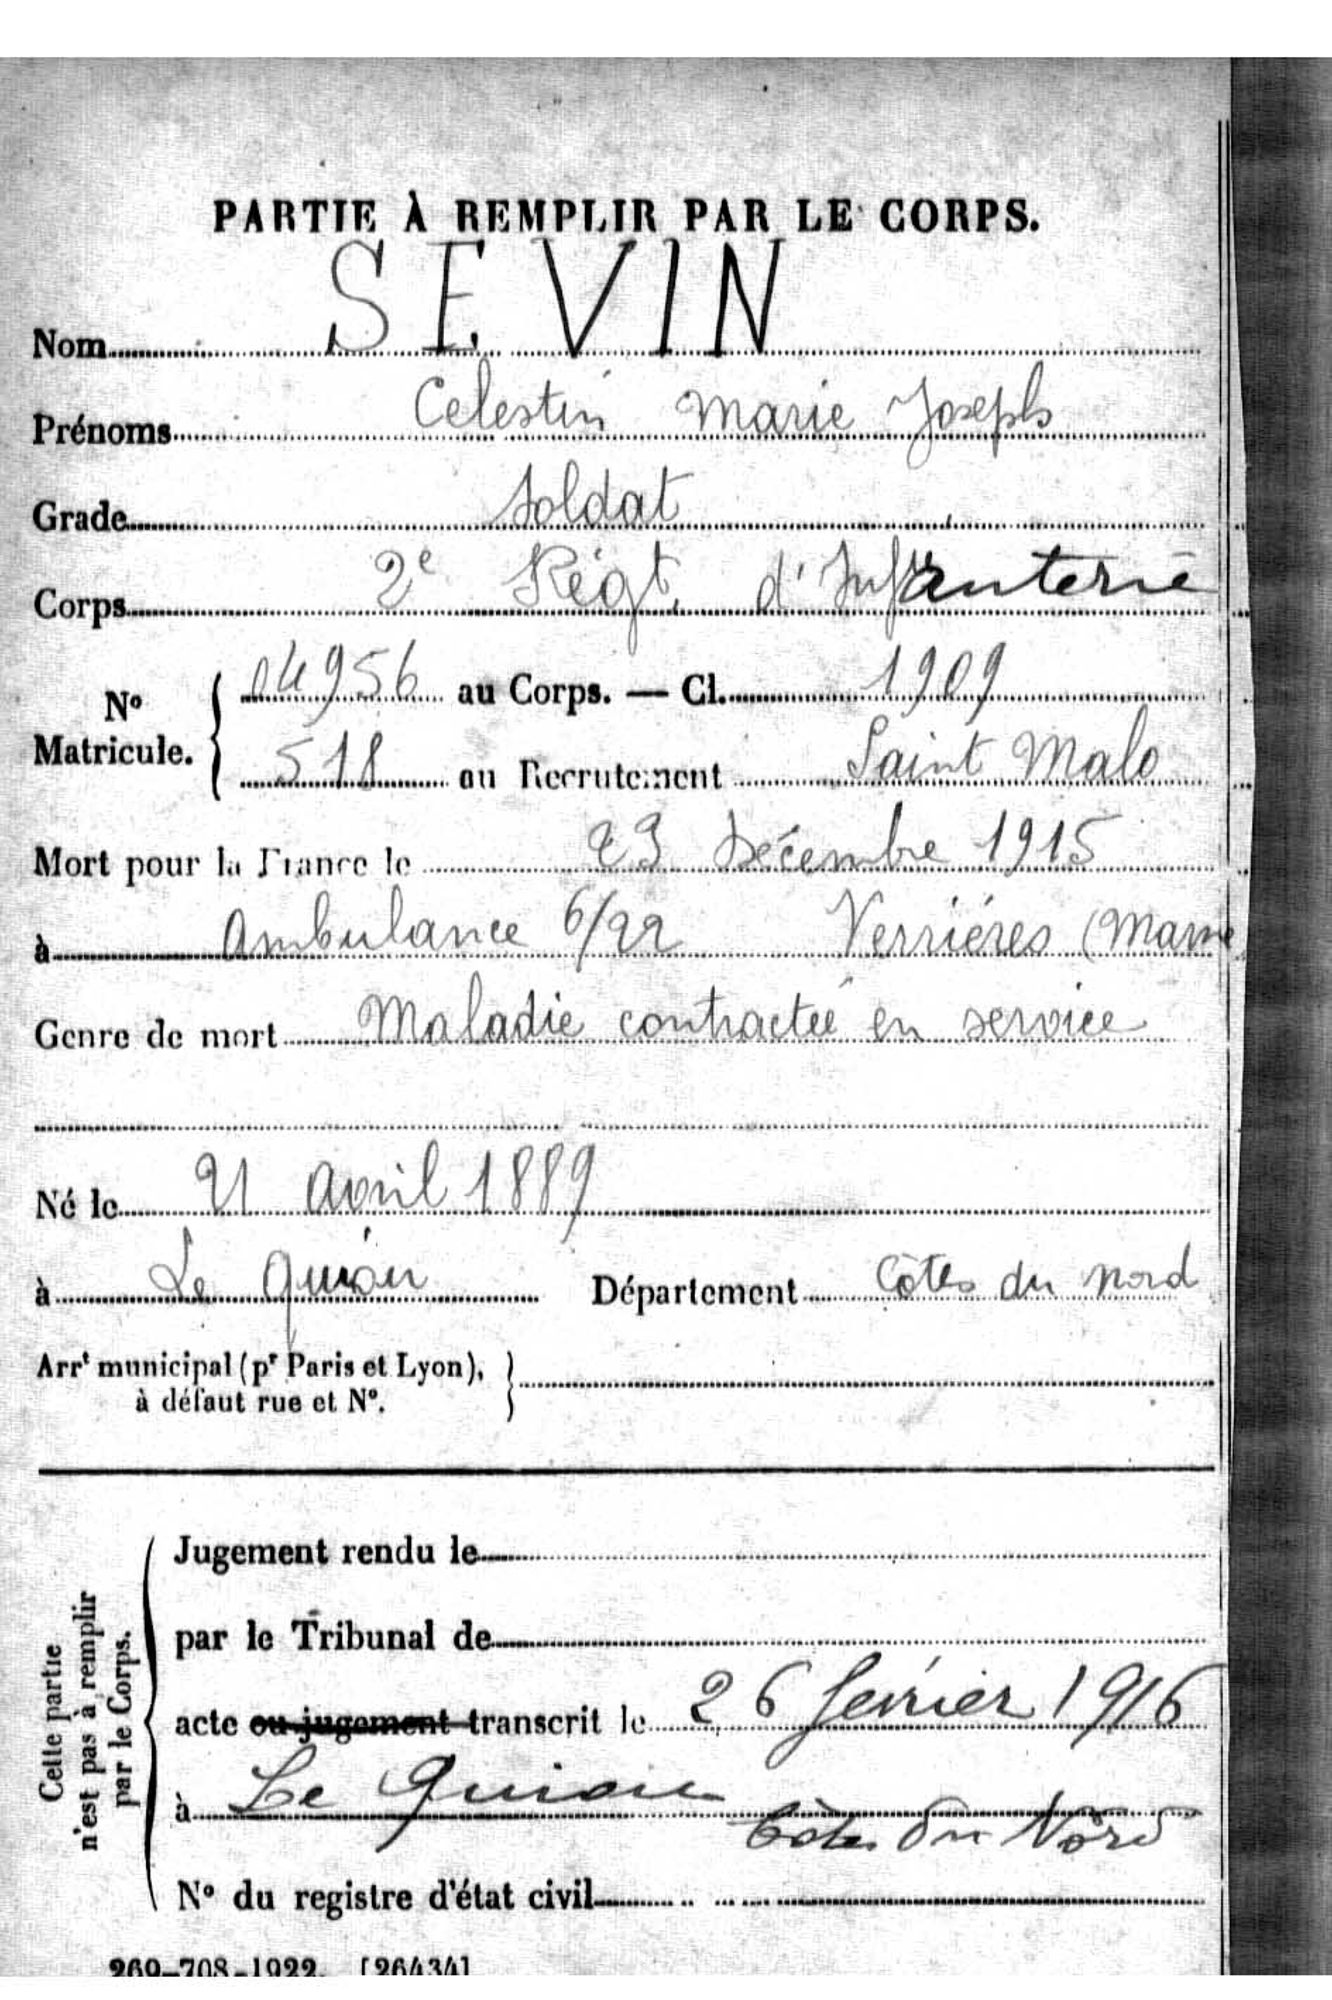 PARTIE À REMPLIR PAR LE CORPS.
Nom SEVIN
Prénoms Celestin Marie Joseph
Grade Soldat
Corps 2e Régt. d'Infanterie
No Matricule. 04956 au Corps. — Cl. 1909
518 au Recrutement Saint Malo
Mort pour la France le 23 Décembre 1915
à Ambulance 6/22 Verrières (Marne
Genre de mort Maladie contractée en service
Né le 21 Avril 1889
à Le Quiou Département Côtes du Nord
Arrt municipal (pr Paris et Lyon),
à défaut rue et No.
Cette partie
n'est pas à remplir
par le Corps.
Jugement rendu le
par le Tribunal de
acte ou jugement transcrit le 26 février 1916
à Le Quiou
Côtes du Nord
No du registre d'état civil
269-708-1922. [26434]